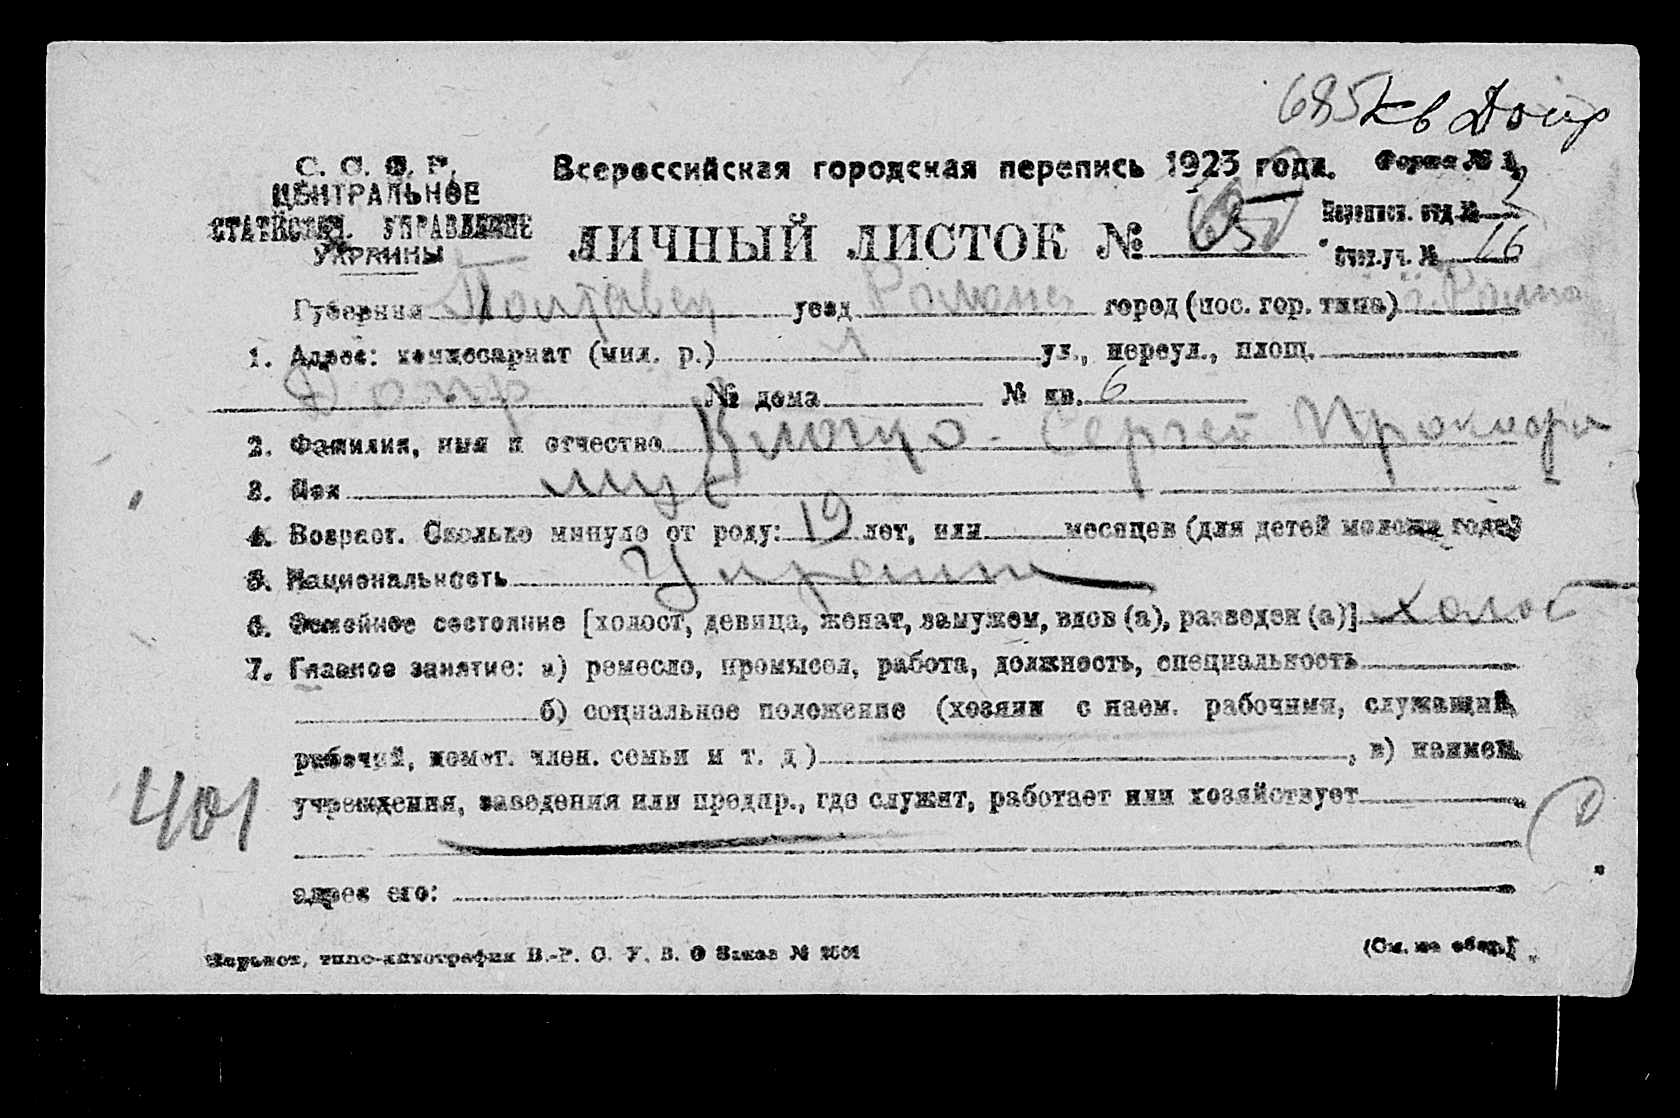 685 кв Допр
С. С. С. Р. Всероссийская городская перепись 1923 года. Форма № 1.
ЦЕНТРАЛЬНОЕ
СТАТИСТИЧ. УПРАВЛЕНИЕ Переписн. отд. №
УКРАИНЫ ЛИЧНЫЙ ЛИСТОК № Счет. уч. № 16
Губерния Полтавск уезд Роменс город (пос. гор. типа) г. Ромны
1. Адрес: комиссариат (мил. р.) 1 ул., переул., площ.
Допр № дома № кв. 6
2. Фамилия, имя и отчество Клочко Сергей Прокофи
3. Пол муж
4. Возраст. Сколько минуло от роду: 19 лет, или месяцев (для детей моложе года)
5. Национальность Украин
6. Семейное состояние [холост, девица, женат, замужем, вдов (а), разведен (а)] холос
7. Главное занятие: а) ремесло, промысел, работа, должность, специальность
б) социальное положение (хозяин с наем. рабочими, служащий,
рабочий, помог. член. семьи и т. д.) , в) наимен.
401 учреждения, заведения или предпр., где служит, работает или хозяйствует
адрес его:
Харьков, типо-литография В.-Р. С. У. В. О Заказ № (См. на обор.)